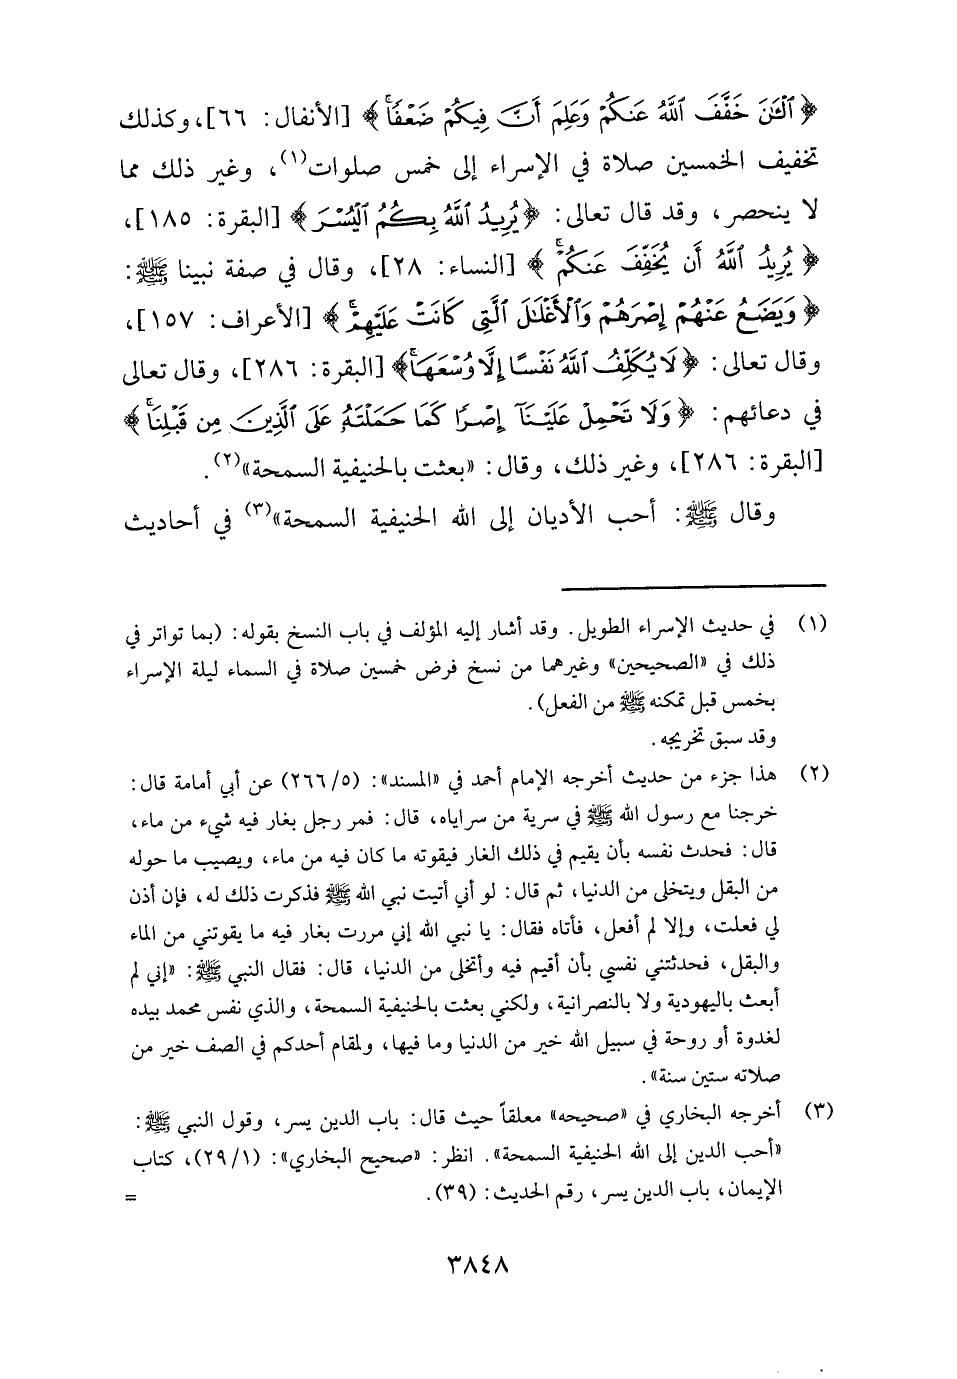 ﴿ ٱلْـَٰٔنَ خَفَّفَ ٱللَّهُ عَنكُمْ وَعَلِمَ أَنَّ فِيكُمْ ضَعْفًا ۚ ﴾ [الأنفال: ٦٦]، وكذلك
تخفيف الخمسين صلاة في الإسراء إلى خمس صلوات(١)، وغير ذلك مما
لا ينحصر، وقد قال تعالى: ﴿ يُرِيدُ ٱللَّهُ بِكُمُ ٱلْيُسْرَ ﴾ [البقرة: ١٨٥]،
﴿ يُرِيدُ ٱللَّهُ أَن يُخَفِّفَ عَنكُمْ ۚ ﴾ [النساء: ٢٨]، وقال في صفة نبينا ﷺ:
﴿ وَيَضَعُ عَنْهُمْ إِصْرَهُمْ وَٱلْأَغْلَٰلَ ٱلَّتِى كَانَتْ عَلَيْهِمْ ۚ ﴾ [الأعراف: ١٥٧]،
وقال تعالى: ﴿ لَا يُكَلِّفُ ٱللَّهُ نَفْسًا إِلَّا وُسْعَهَا ۚ ﴾ [البقرة: ٢٨٦]، وقال تعالى
في دعائهم: ﴿ وَلَا تَحْمِلْ عَلَيْنَآ إِصْرًا كَمَا حَمَلْتَهُۥ عَلَى ٱلَّذِينَ مِن قَبْلِنَا ۚ ﴾
[البقرة: ٢٨٦]، وغير ذلك، وقال: «بعثت بالحنيفية السمحة»(٢).
وقال ﷺ: أحب الأديان إلى الله الحنيفية السمحة»(٣) في أحاديث
(١) في حديث الإسراء الطويل. وقد أشار إليه المؤلف في باب النسخ بقوله: (بما تواتر في
ذلك في «الصحيحين» وغيرهما من نسخ فرض خمسين صلاة في السماء ليلة الإسراء
بخمس قبل تمكنه ﷺ من الفعل).
وقد سبق تخريجه.
(٢) هذا جزء من حديث أخرجه الإمام أحمد في «المسند»: (٢٦٦/٥) عن أبي أمامة قال:
خرجنا مع رسول الله ﷺ في سرية من سراياه، قال: فمر رجل بغار فيه شيء من ماء،
قال: فحدث نفسه بأن يقيم في ذلك الغار فيقوته ما كان فيه من ماء، ويصيب ما حوله
من البقل ويتخلى من الدنيا، ثم قال: لو أني أتيت نبي الله ﷺ فذكرت ذلك له، فإن أذن
لي فعلت، وإلا لم أفعل، فأتاه فقال: يا نبي الله إني مررت بغار فيه ما يقوتني من الماء
والبقل، فحدثتني نفسي بأن أقيم فيه وأتخلى من الدنيا، قال: فقال النبي ﷺ: «إني لم
أبعث باليهودية ولا بالنصرانية، ولكني بعثت بالحنيفية السمحة، والذي نفس محمد بيده
لغدوة أو روحة في سبيل الله خير من الدنيا وما فيها، ولمقام أحدكم في الصف خير من
صلاته ستين سنة».
(٣) أخرجه البخاري في «صحيحه» معلقاً حيث قال: باب الدين يسر، وقول النبي ﷺ:
«أحب الدين إلى الله الحنيفية السمحة». انظر: «صحيح البخاري»: (٢٩/١)، كتاب
الإيمان، باب الدين يسر، رقم الحديث: (٣٩). =
٣٨٤٨